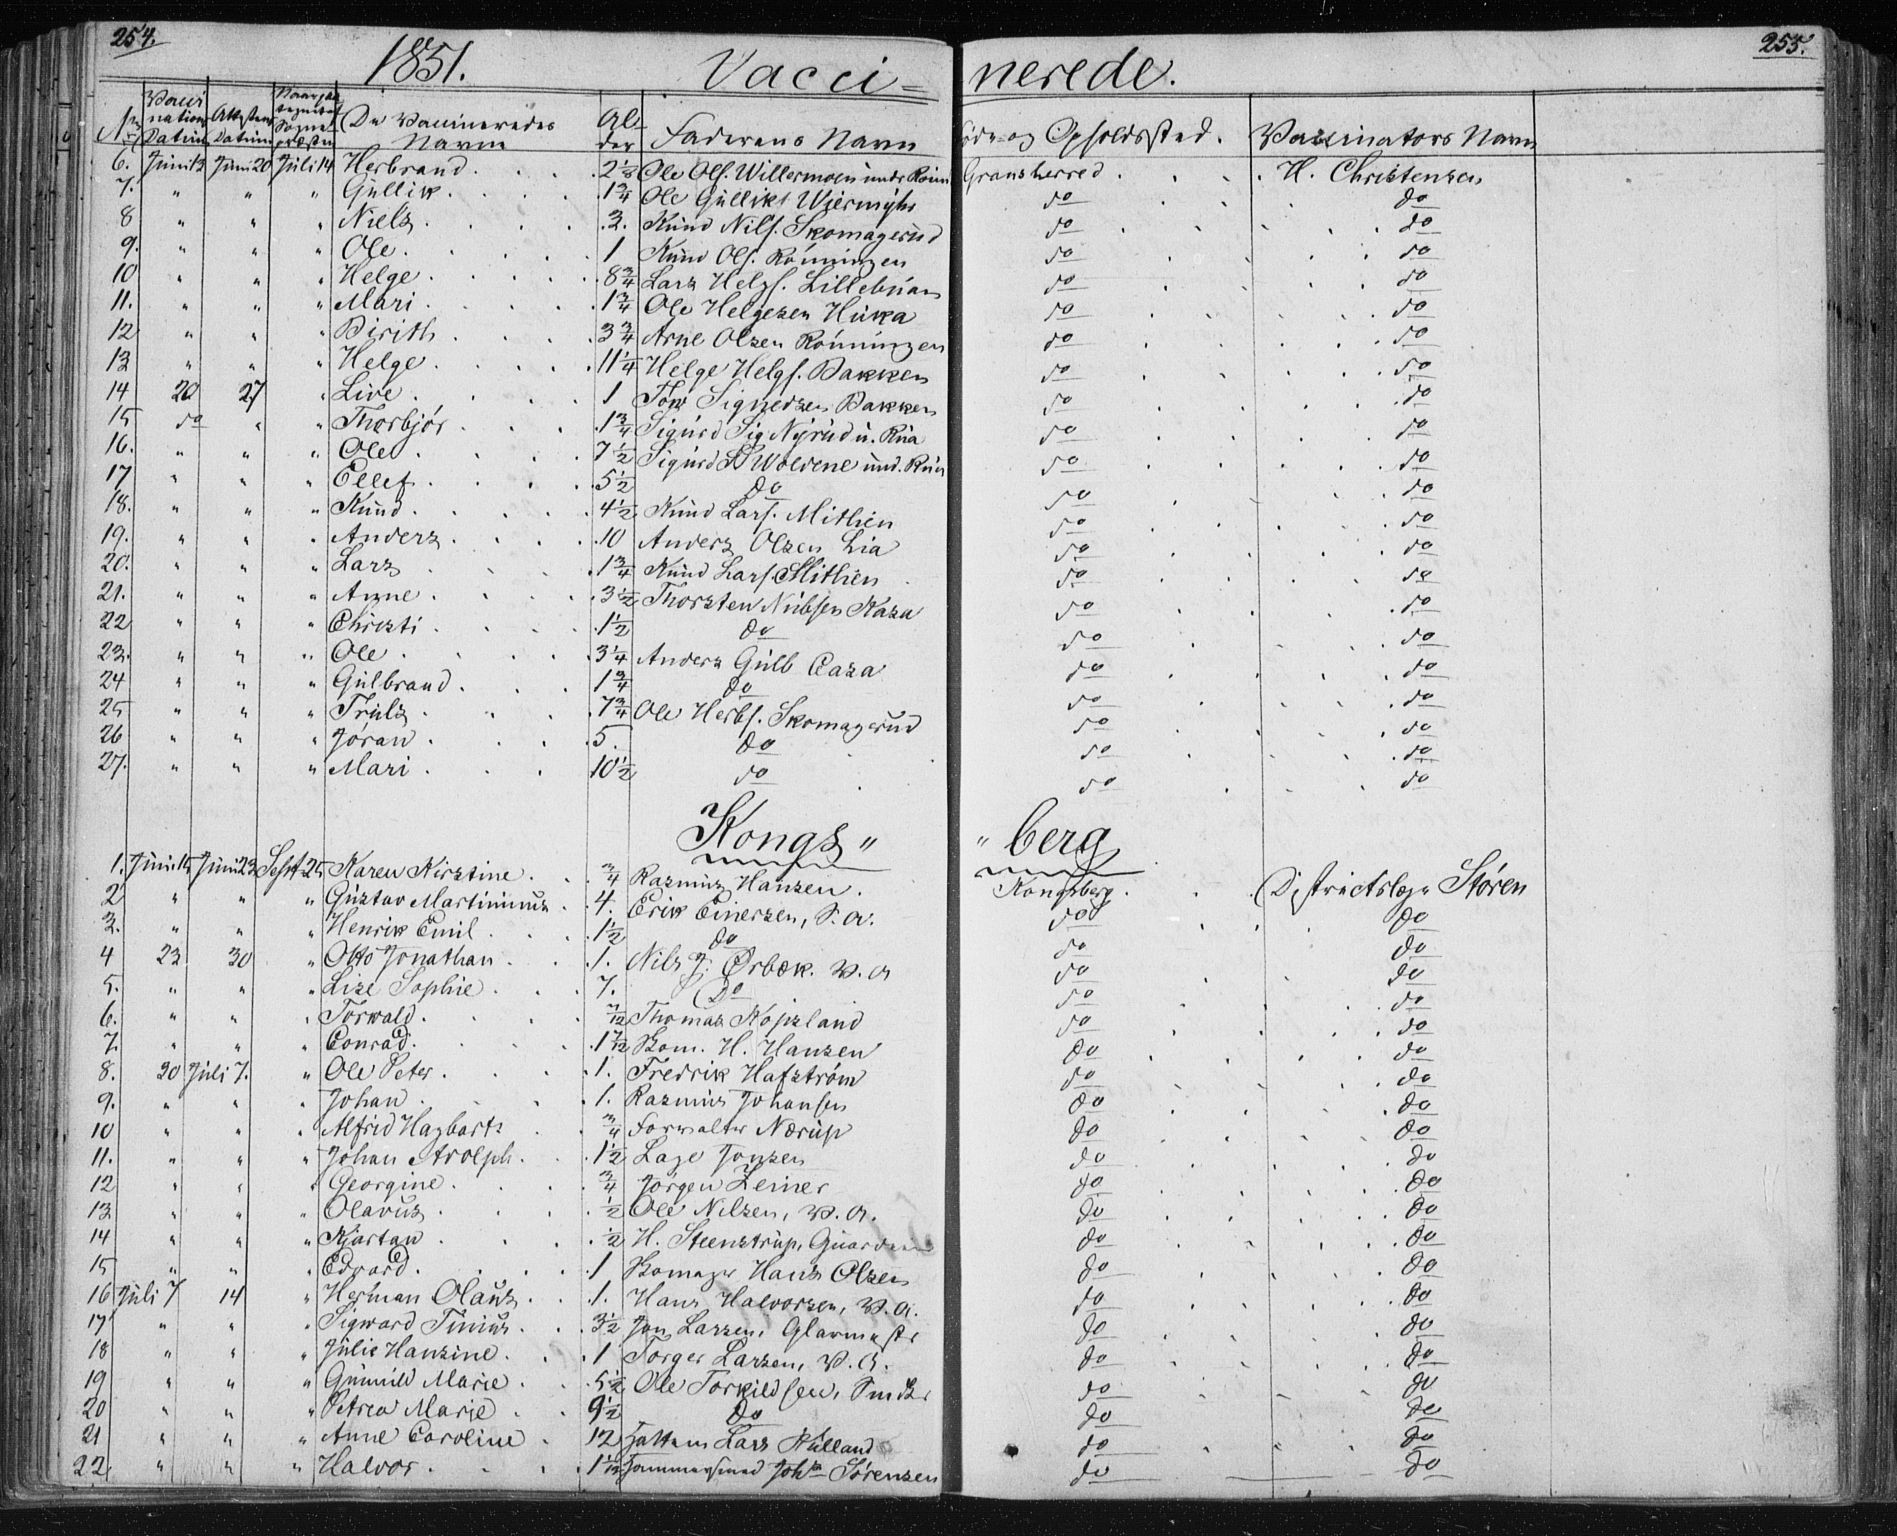 254. 255.
1851. Vacci= nerede.
No Vacci nations Datum Attestens Datum De Vaccineredes Navne Al- der Faderens Navn Føde- og Opholdssted. Vaccinators Navn
6. Juni 13 Juni 20 Juli 14 Herbrand 2 1/3 Ole Ols. Willermoen under Gransherred H. Christensen
7. " " " Gullik 1 3/4 Ole Gulliks do do
8 " " " Niels 3. Knud Nils. Skomagerud do do
9. " " " Ole 1 Knud Ols. Rönningen do do
10 " " " Helge 8 3/4 Lars Helgs. Lillebuan do do
11. " " " Mari 1 3/4 Ole Helgesen Huka do do
12 " " " Birith 3 3/4 Arne Olsen Rönningen do do
13 " " " Helge 11 1/4 Helge Helgs. Bakken do do
14 20 27 " Live 1 Sigurdsen Bakken do do
15 do " " Thorbjör 1 3/4 Sigurd Sig Nyrud u. Rua do do
16. " " " Ole 7 1/2 Sigurd S Woldene und. do do
17 " " " Ellef 5 1/2 do do do
18. " " " Knud 4 1/2 Knud Lars. Mithien do do
19. " " " Anders 10 Anders Olsen Lia do do
20. " " " Lars 1 3/4 Knud Lars. Mithien do do
21. " " " Anne 3 1/2 Thorsten Nubsen Kasa do do
22 " " " Christi 1 1/2 do do do
23. " " " Ole 3 1/4 Anders Gulb Casa do do
24 " " " Gulbrand 1 3/4 do do do
25 " " " Truls 7 3/4 Ole Herbs. Skomagerud do do
26 " " " Joran 5. do do do
27. " " " Mari 10 1/2 do do do
Kongs " " berg
1. Juni 15 Juni 23 Sept 25 Karen Kirstine 3/4 Rasmus Hansen. Kongsberg Districtslæge Stören
2 " " " Gustav Martinius 4. Erik Einersen, S. A. do do
3. " " " Henrik Emil 1 1/2 do do do
4 23 30 " Otto Jonathan 1. Nils J. Ørbæk. V. A do do
5. " " " Lise Sophie 7. Do do do
6. " " " Torwald 7/12 Thomas Kopsland do do
7. " " " Conrad 1 7/12 Kom. H. Hansen do do
8. 30 Juli 7. " Ole Peter 1. Fredrik Hafström do do
9. " " " Johan 1. Rasmus Johansen do do
10 " " " Alfrid Hagbarth 3/4 Forvalter Nærup do do
11. " " " Johan Adolph 1 1/2 Lage Jonsen do do
12 " " " Georgine 3/4 Jörgen Zeiner do do
13 " " " Olavus 1/2 Ole Nilsen, V. A. do do
14 " " " Kjartan 1/2 H. Steenstrup, Guardein do do
15 " " " Edvard 1 Komager Hans Olsen do do
16 Juli 7 14 " Herman Olaus 1. Hans Halvorsen, V. A. do do
17 " " " Sigward Tinius 3 1/2 Jon Larsen, Glarmester do do
18 " " " Julie Hansine 1 Torger Larsen, V. A. do do
19 " " " Gunnild Marie 5 1/2 Ole Torkildsen, Smed do do
20 " " " Petrea Marie 9 1/2 do do do
21 " " " Anne Caroline 12 Lars Rulland do do
22 " " " Halvor 1 1/12 Hammersmed Johs Sörensen do do